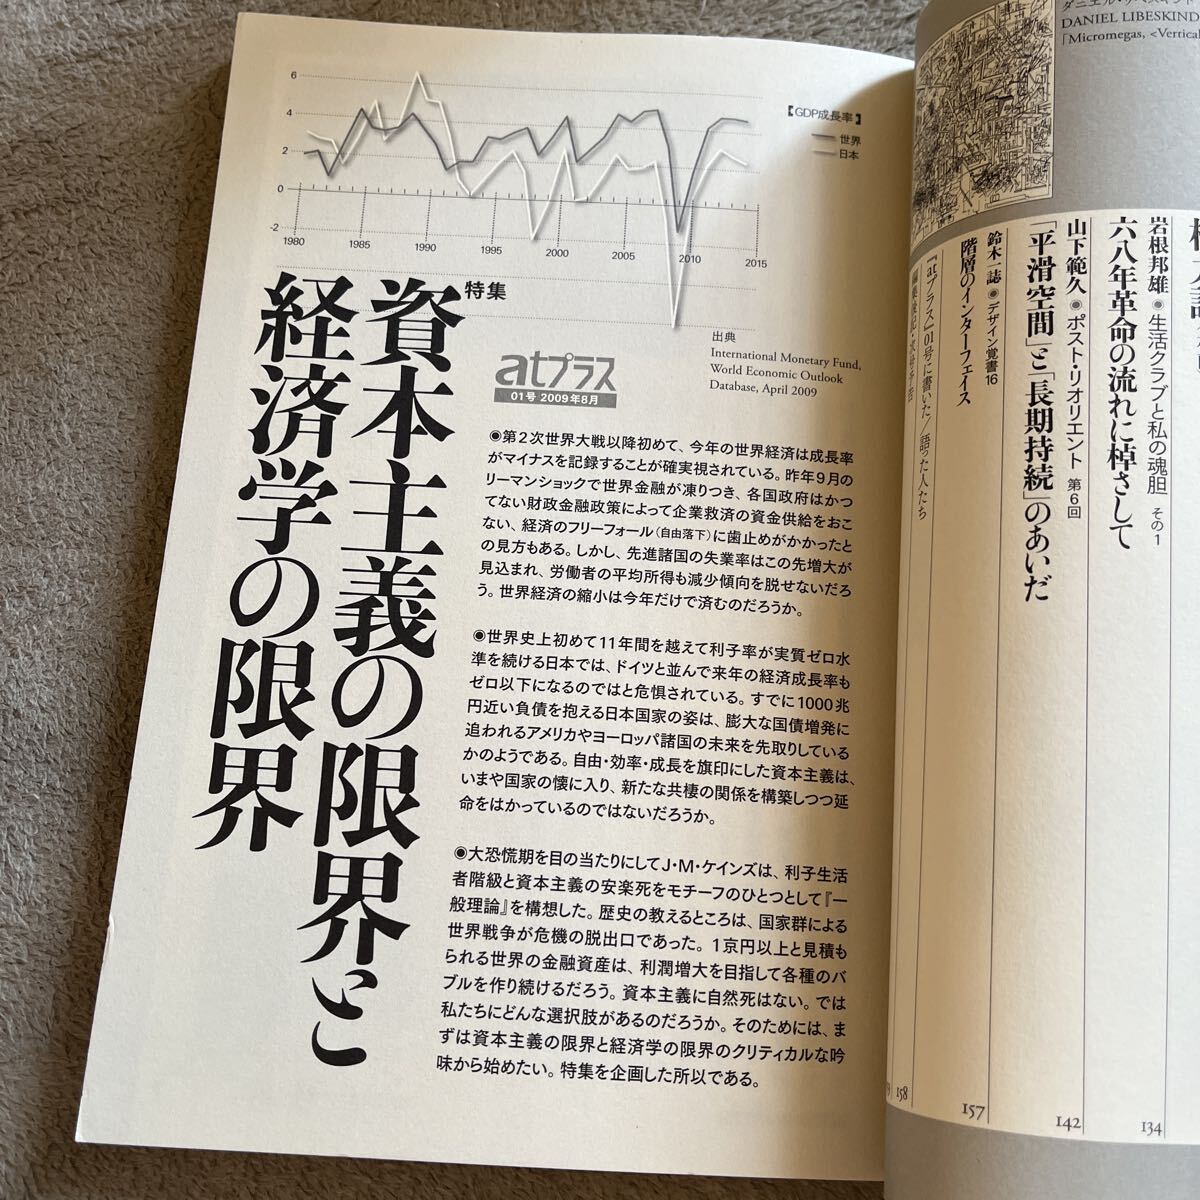 6
4
2
0
-2
1980
1985
1990
1995
2000
2005
2010
2015
【GDP成長率】
世界
日本
特集
資本主義の限界と
経済学の限界
atプラス
01号 2009年8月
出典
International Monetary Fund,
World Economic Outlook
Database, April 2009
◉第2次世界大戦以降初めて、今年の世界経済は成長率
がマイナスを記録することが確実視されている。昨年9月の
リーマンショックで世界金融が凍りつき、各国政府はかつ
てない財政金融政策によって企業救済の資金供給をおこ
ない、経済のフリーフォール(自由落下)に歯止めがかかったと
の見方もある。しかし、先進諸国の失業率はこの先増大が
見込まれ、労働者の平均所得も減少傾向を脱せないだろ
う。世界経済の縮小は今年だけで済むのだろうか。
◉世界史上初めて11年間を越えて利子率が実質ゼロ水
準を続ける日本では、ドイツと並んで来年の経済成長率も
ゼロ以下になるのではと危惧されている。すでに1000兆
円近い負債を抱える日本国家の姿は、膨大な国債増発に
追われるアメリカやヨーロッパ諸国の未来を先取りしている
かのようである。自由・効率・成長を旗印にした資本主義は、
いまや国家の懐に入り、新たな共棲の関係を構築しつつ延
命をはかっているのではないだろうか。
◉大恐慌期を目の当たりにしてJ・M・ケインズは、利子生活
者階級と資本主義の安楽死をモチーフのひとつとして『一
般理論』を構想した。歴史の教えるところは、国家群による
世界戦争が危機の脱出口であった。1京円以上と見積も
られる世界の金融資産は、利潤増大を目指して各種のバ
ブルを作り続けるだろう。資本主義に自然死はない。では
私たちにどんな選択肢があるのだろうか。そのためには、ま
ずは資本主義の限界と経済学の限界のクリティカルな吟
味から始めたい。特集を企画した所以である。
DANIEL LIBESKIND
「Micromegas, <Vertical
岩根邦雄◉生活クラブと私の魂胆 その1
六八年革命の流れに棹さして
134
山下範久◉ポスト・リオリエント 第6回
「平滑空間」と「長期持続」のあいだ
142
鈴木一誌◉デザイン覚書16
階層のインターフェイス
157
『atプラス』01号に書いた/語った人たち
158